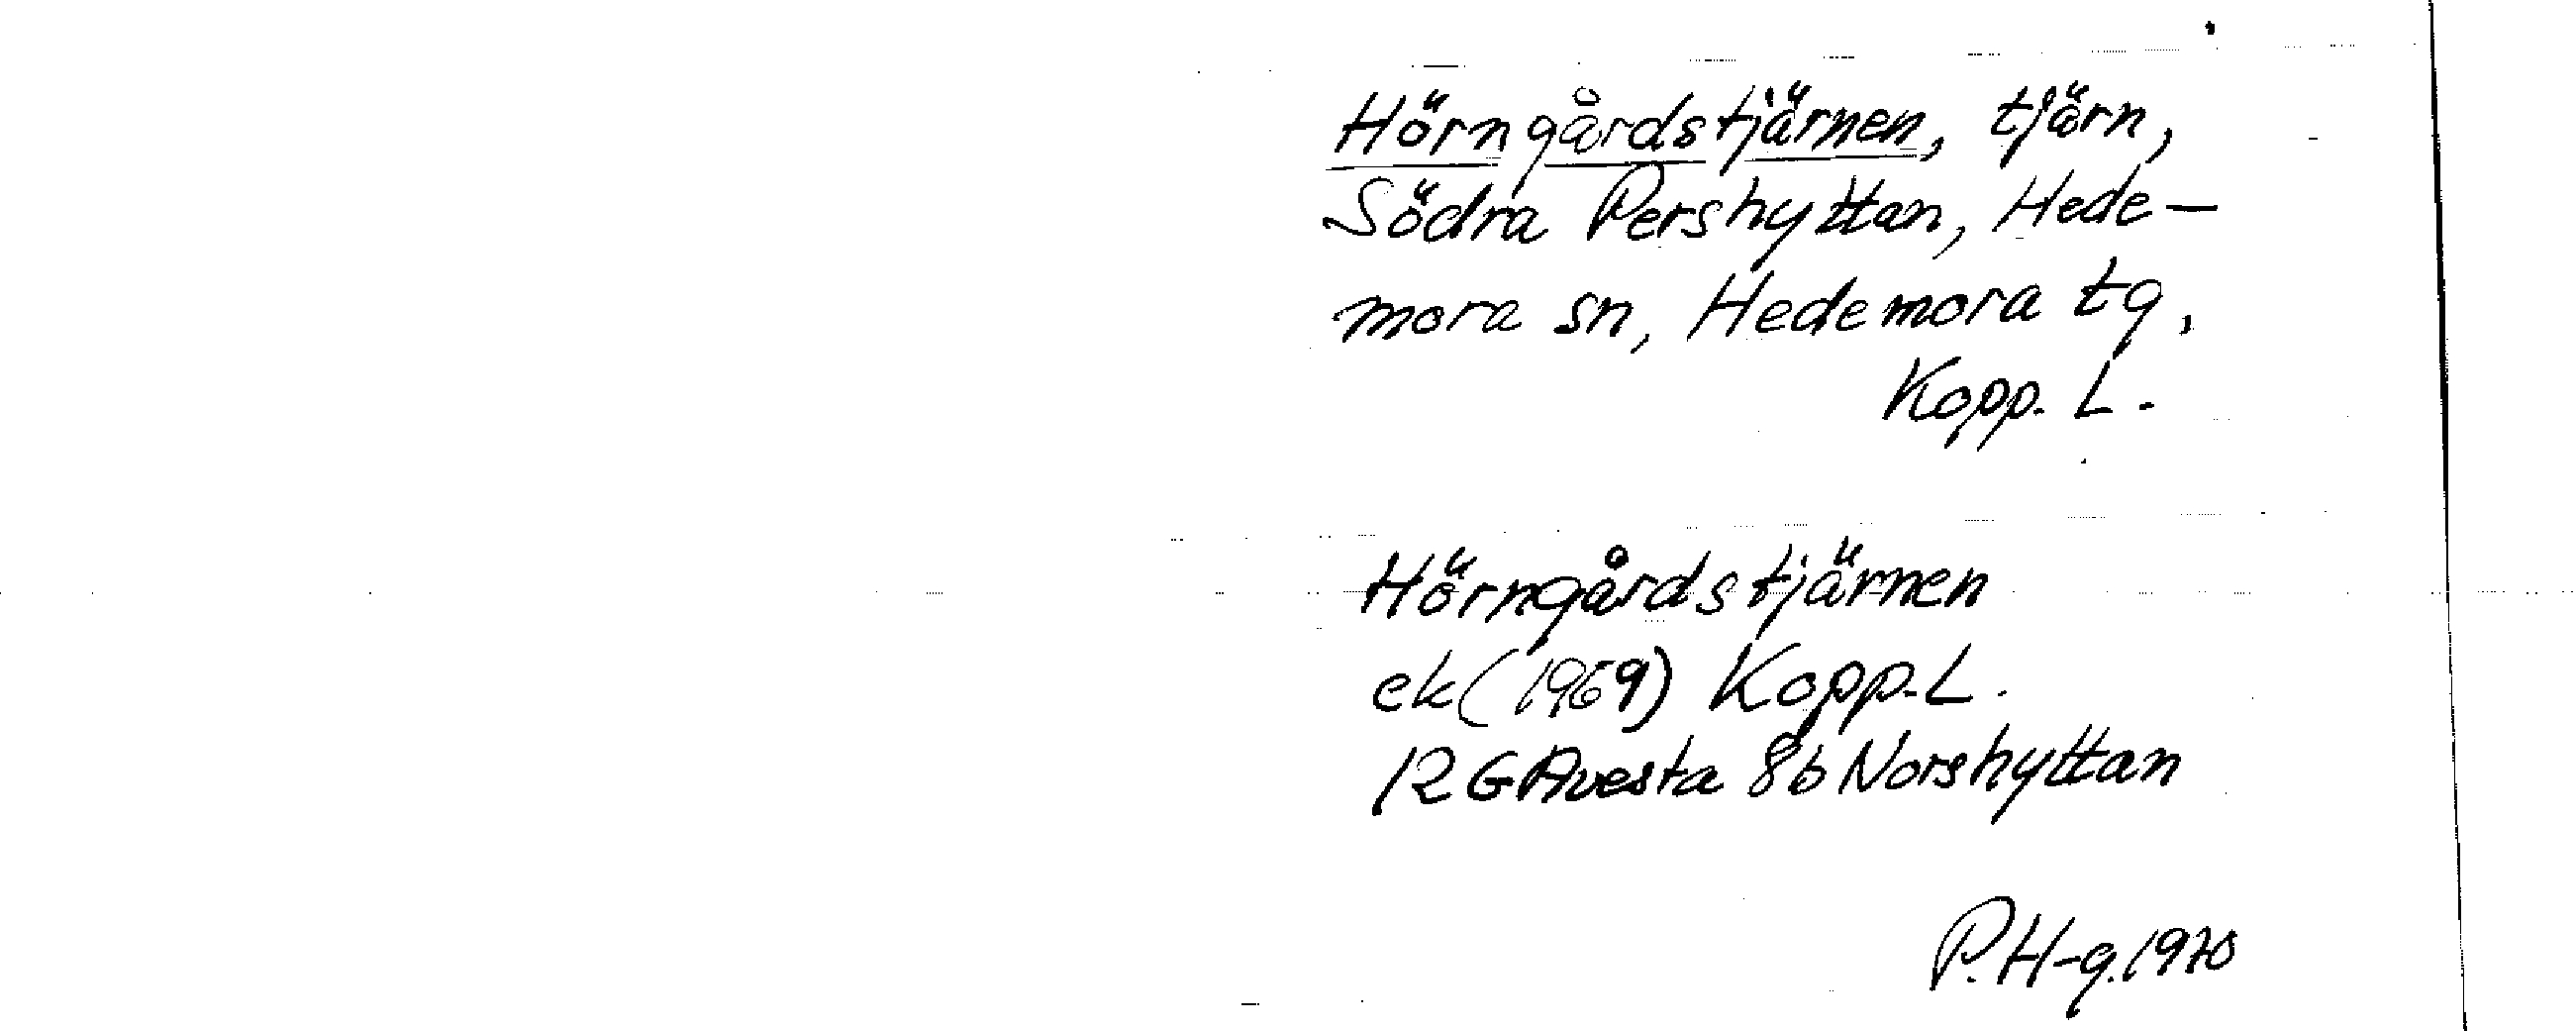 Hörngårdstjärnen, tjärn,
Södra Pershyttan, Hede-
mora sn, Hedemora tg,
Kopp. L.
Hörngårdstjärnen
ek (1969) Kopp. L.
12 G Avesta 8b Norshyttan
P. H-g. 1970